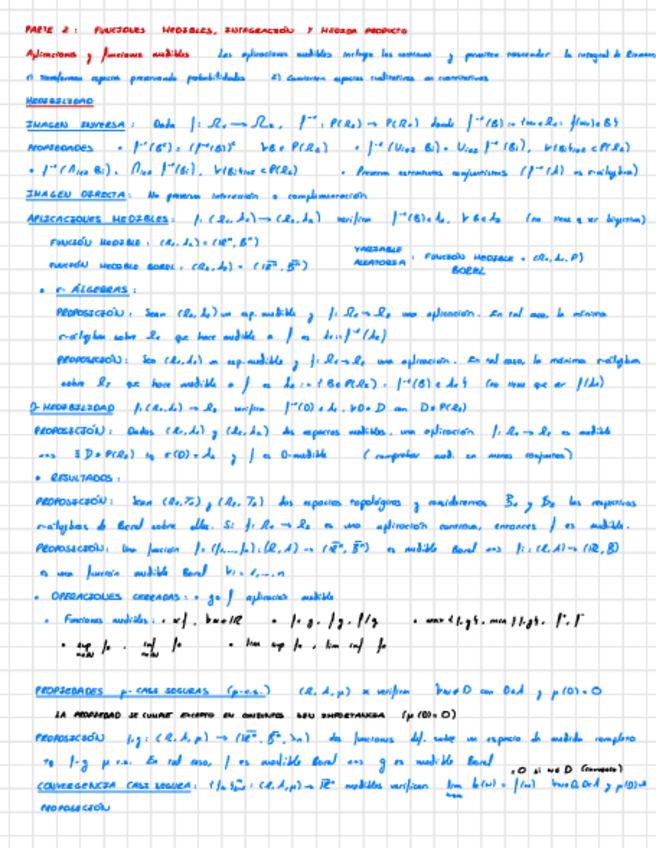 PARTE 2: FUNCIONES MEDIBLES, INTEGRACIÓN Y MEDIDA PRODUCTO
Aplicaciones y funciones medibles Las aplicaciones medibles incluyen las continuas y permiten trascender la integral de Riemann
1) Transforman espacios preservando probabilidades 2) Convierten espacios cualitativos en cuantitativos
MEDIBILIDAD
IMAGEN INVERSA: Dada f: Ω₁ → Ω₂, f⁻¹: P(Ω₂) → P(Ω₁) donde f⁻¹(B) = {w∈Ω₁: f(w)∈B}
PROPIEDADES • f⁻¹(Bᶜ) = (f⁻¹(B))ᶜ ∀B∈P(Ω₂) • f⁻¹(∪ᵢ∈I Bᵢ) = ∪ᵢ∈I f⁻¹(Bᵢ), ∀{Bᵢ}ᵢ∈I ⊂ P(Ω₂)
• f⁻¹(∩ᵢ∈I Bᵢ) = ∩ᵢ∈I f⁻¹(Bᵢ), ∀{Bᵢ}ᵢ∈I ⊂ P(Ω₂) • Preserva estructuras conjuntistas (f⁻¹(A) es σ-álgebra)
IMAGEN DIRECTA: No preserva intersección o complementación
APLICACIONES MEDIBLES: f: (Ω₁, A₁) → (Ω₂, A₂) verifica f⁻¹(B)∈A₁ ∀B∈A₂ (no tiene q ser biyectiva)
FUNCIÓN MEDIBLE: (Ω₂, A₂) = (ℝⁿ, Bⁿ)
FUNCIÓN MEDIBLE BOREL: (Ω₂, A₂) = (ℝ̄ⁿ, B̄ⁿ) VARIABLE ALEATORIA: FUNCIÓN MEDIBLE BOREL + (Ω₁, A₁, P)
• σ-ÁLGEBRAS:
PROPOSICIÓN: Sean (Ω₂, A₂) un esp. medible y f: Ω₁ → Ω₂ una aplicación. En tal caso, la mínima
σ-álgebra sobre Ω₁ que hace medible a f es A₁ := f⁻¹(A₂)
PROPOSICIÓN: Sea (Ω₁, A₁) un esp. medible y f: Ω₁ → Ω₂ una aplicación. En tal caso, la máxima σ-álgebra
sobre Ω₂ que hace medible a f es A₂ := {B∈P(Ω₂): f⁻¹(B)∈A₁} (no tiene que ser f(A₁))
D-MEDIBILIDAD f: (Ω₁, A₁) → Ω₂ verifica f⁻¹(D)∈A₁ ∀D∈D con D⊂P(Ω₂)
PROPOSICIÓN: Dados (Ω₁, A₁) y (Ω₂, A₂) dos espacios medibles, una aplicación f: Ω₁ → Ω₂ es medible
⟺ ∃ D⊂P(Ω₂) tq σ(D) = A₂ y f es D-medible (comprobar med. en menos conjuntos)
• RESULTADOS:
PROPOSICIÓN: Sean (Ω₁, T₁) y (Ω₂, T₂) dos espacios topológicos y consideremos B₁ y B₂ las respectivas
σ-álgebras de Borel sobre ellos. Si f: Ω₁ → Ω₂ es una aplicación continua, entonces f es medible.
PROPOSICIÓN: Una función f = (f₁,...,fₙ): (Ω, A) → (ℝ̄ⁿ, B̄ⁿ) es medible Borel ⟺ fᵢ: (Ω, A) → (ℝ̄, B̄)
es una función medible Borel ∀i = 1,...,n
• OPERACIONES CERRADAS: • g∘f aplicación medible
• Funciones medibles: • αf, ∀α∈ℝ • f+g, f·g, f/g • max{f,g}, min{f,g}, f⁺, f⁻
• sup fₙ, inf fₙ • lim sup fₙ, lim inf fₙ
PROPIEDADES μ-CASI SEGURAS (μ-c.s.) (Ω, A, μ) se verifica ∀w∉D con D∈A y μ(D)=0
LA PROPIEDAD SE CUMPLE EXCEPTO EN CONJUNTOS SIN IMPORTANCIA (μ(D)=0)
PROPOSICIÓN f, g: (Ω, A, μ) → (ℝ̄ⁿ, B̄ⁿ, λₙ) dos funciones def. sobre un espacio de medida completo
tq f=g μ-c.s. En tal caso, f es medible Borel ⟺ g es medible Borel
, 0 si w∈D (convenio)
CONVERGENCIA CASI SEGURA: {fₙ}: (Ω, A, μ) → ℝ̄ⁿ medibles verifican lim fₙ(w) = f(w) ∀w∉D, D∈A y μ(D)=0
PROPOSICIÓN